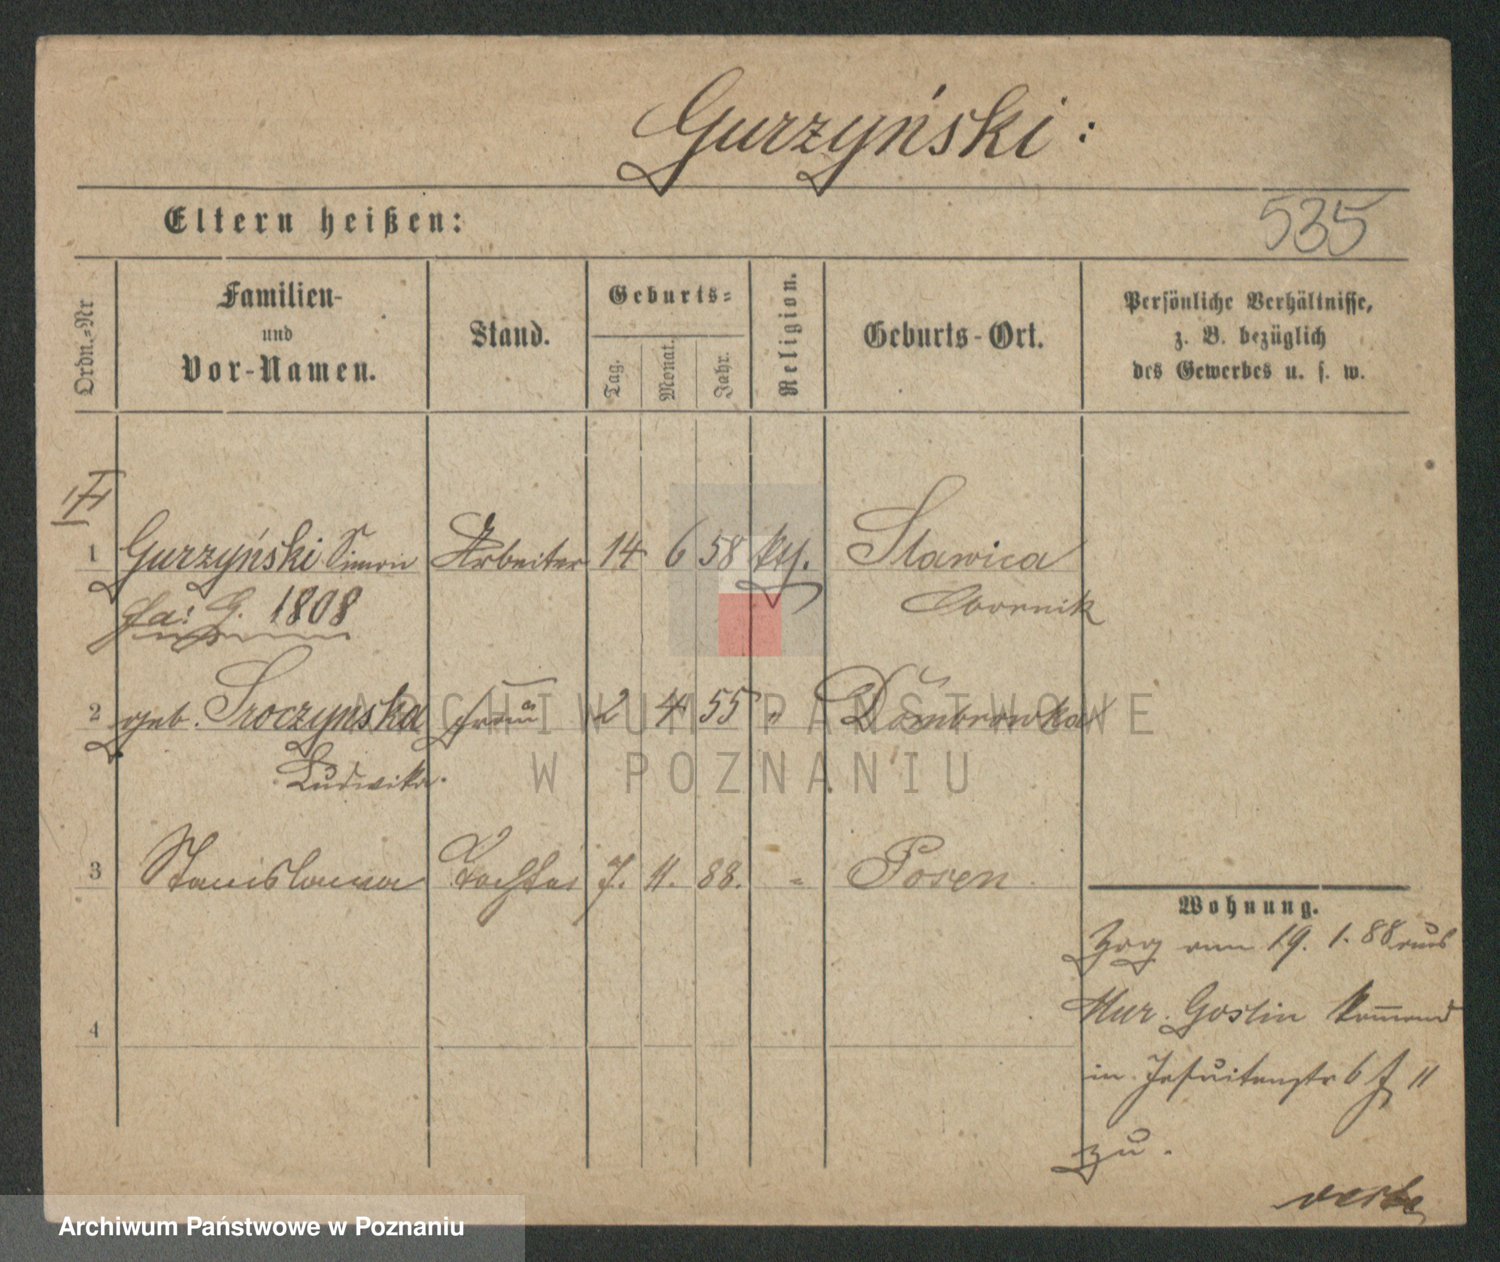 Gurzyński:
Eltern heißen:
535
Ordn.-Nr
Familien-
und
Vor-Namen.
Stand.
Geburts-
Tag.
Monat.
Jahr.
Religion.
Geburts-Ort.
Persönliche Verhältnisse,
z. B. bezüglich
des Gewerbes u. s. w.
1 Gurzyński Simon Arbeiter 14 6 58 kth. Slawica
G. 1808 Obornik
2 geb. Sroczynska Frau 2 4 55 " Dombrowka
Ludwika.
3 Stanislawa Tochter 7. 11. 88. - Posen
4
Wohnung.
Zog am 19. 1. 88 aus
Mur. Goslin kommend
in Jesuitenstr 6 11
zu.
ARCHIWUM PAŃSTWOWE
W POZNANIU
Archiwum Państwowe w Poznaniu